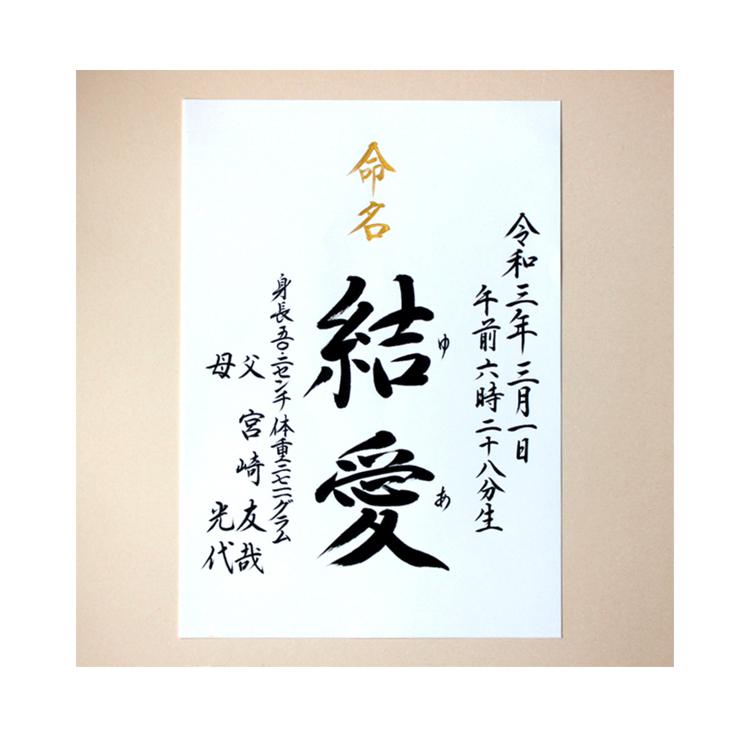 命名
令和三年三月一日
午前六時二十八分生
結愛
ゆあ
身長五〇・二センチ 体重二七二一グラム
父 宮崎友哉
母 光代